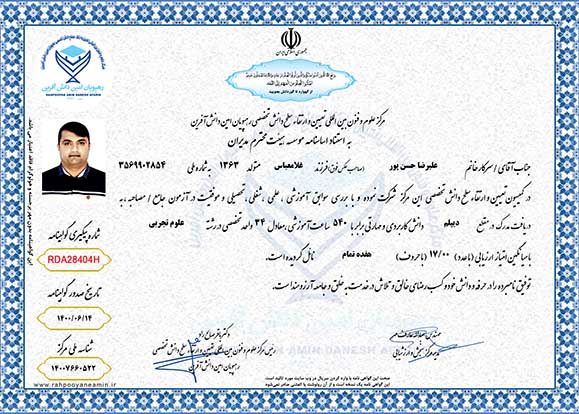 جمهوری اسلامی ایران
ز گهواره تا گور دانش بجویید
رهپویان امین دانش آفرین
RAHPOOYAN AMIN DANESH AFARIN
مرکز علوم و فنون بین المللی تعیین و ارتقاء سطح دانش تخصصی رهپویان امین دانش آفرین
به استناد اساسنامه موسسه، هیئت محترم مدیران
جناب آقای / سرکار خانم علیرضا حسن پور (صاحب عکس فوق) فرزند غلامعباس متولد ۱۳۶۳ به شماره ملی ۳۵۶۹۹۰۲۸۵۴
در کمیسیون تعیین و ارتقاء سطح دانش تخصصی این مرکز شرکت نموده و با بررسی سوابق آموزشی، علمی، شغلی، تحصیلی و موفقیت در آزمون جامع / مصاحبه، به
دریافت مدرک در مقطع دیپلم دانش کاربردی و مهارتی برابر با ۵۴۰ ساعت آموزشی، معادل ۳۴ واحد تخصصی در رشته علوم تجربی
با میانگین امتیاز ارزیابی (با عدد) ۱۷/۰۰ (با حروف) هفده تمام نائل گردیده است.
توفیق نامبرده را در حرفه و دانش خود و کسب رضای خالق و تلاش در خدمت به خلق و جامعه آرزومند است.
شماره پیگیری گواهینامه
RDA28404H
تاریخ صدور گواهینامه
۱۴۰۰/۰۶/۱۴
شناسه ملی مرکز
۱۴۰۰۷۶۶۰۵۲۲
رئیس مرکز علوم و فنون بین المللی تعیین و ارتقاء سطح دانش تخصصی
رهپویان امین دانش آفرین
AMIN DANESH AFARIN
www.rahpooyaneamin.ir